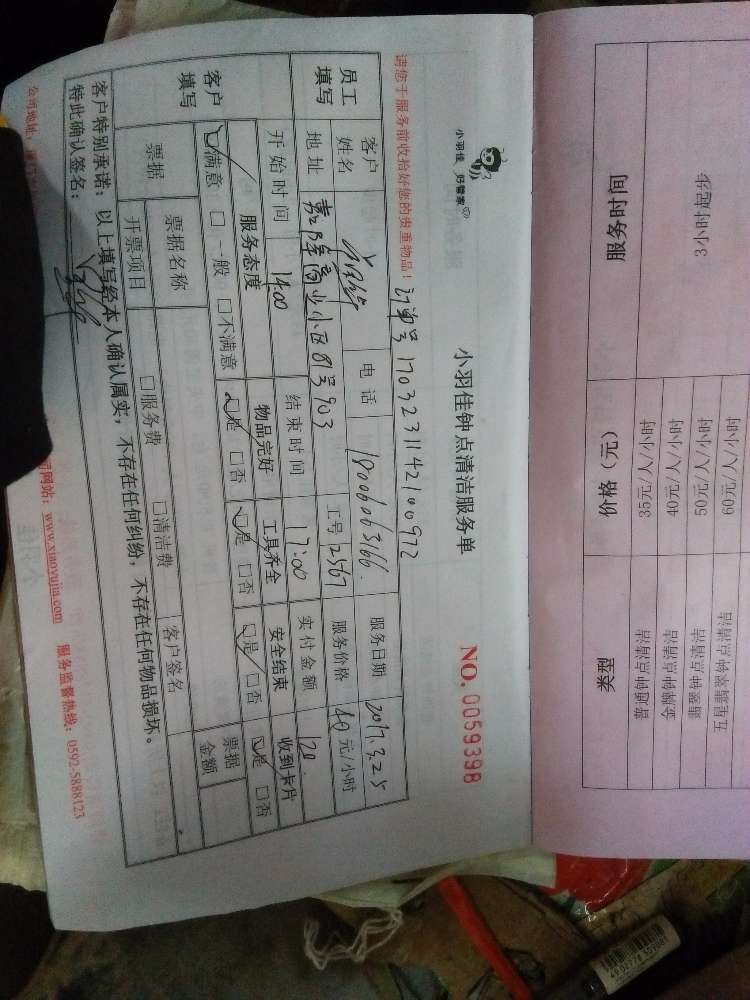 小羽佳 好管家
小羽佳钟点清洁服务单
NO. 0059398
请您于服务前收拾好您的贵重物品！ 订单号 1703231142100972
员工填写 客户姓名 电话 18006063166 服务日期 2017.3.25
地址 嘉隆商业小区81号903 工号 2567 服务价格 40元/小时
开始时间 14:00 结束时间 17:00 实付金额 120
客户填写 服务态度 物品完好 工具齐全 安全结束 收到卡片
☑满意 □一般 □不满意 ☑是 □否 ☑是 □否 ☑是 □否 ☑是 □否
票据 票据名称 □服务费 □清洁费 票据金额
开票项目 客户签名
客户特别承诺：以上填写经本人确认属实，不存在任何纠纷，不存在任何物品损坏。
特此确认签名：
公司地址：
网站：www.xiaoyujia.com 服务监督热线：0592-5888123
服务时间 价格（元） 类型
3小时起步 35元/人/小时 普通钟点清洁
40元/人/小时 金牌钟点清洁
50元/人/小时 翡翠钟点清洁
60元/人/小时 五星翡翠钟点清洁